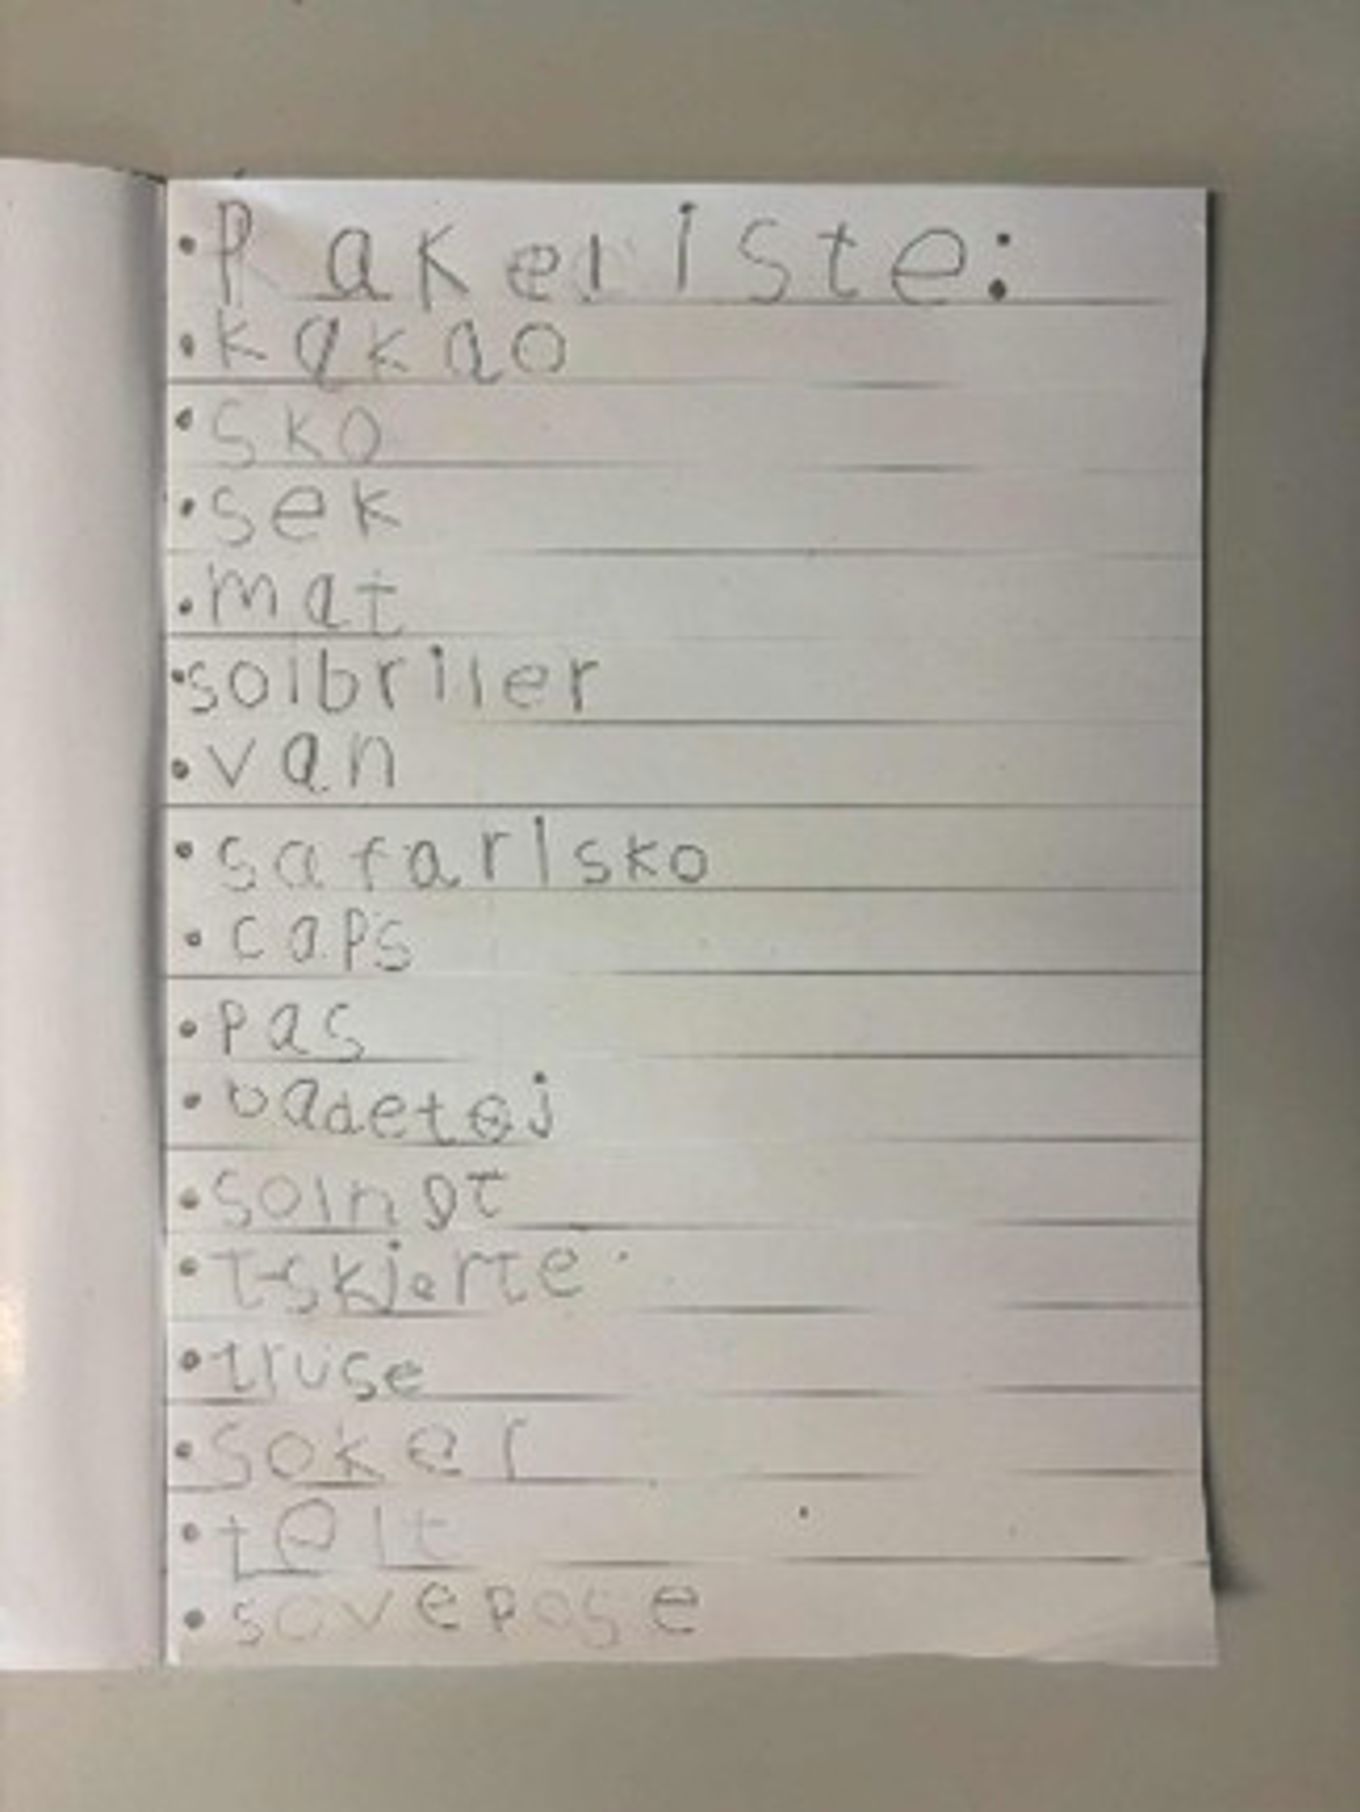 • Pakeliste:
• kakao
• sko
• sek
• mat
• solbriler
• van
• safarisko
• caps
• pas
• badetøj
• solhat
• t-skjorte
• truse
• soker
• telt
• sovepose